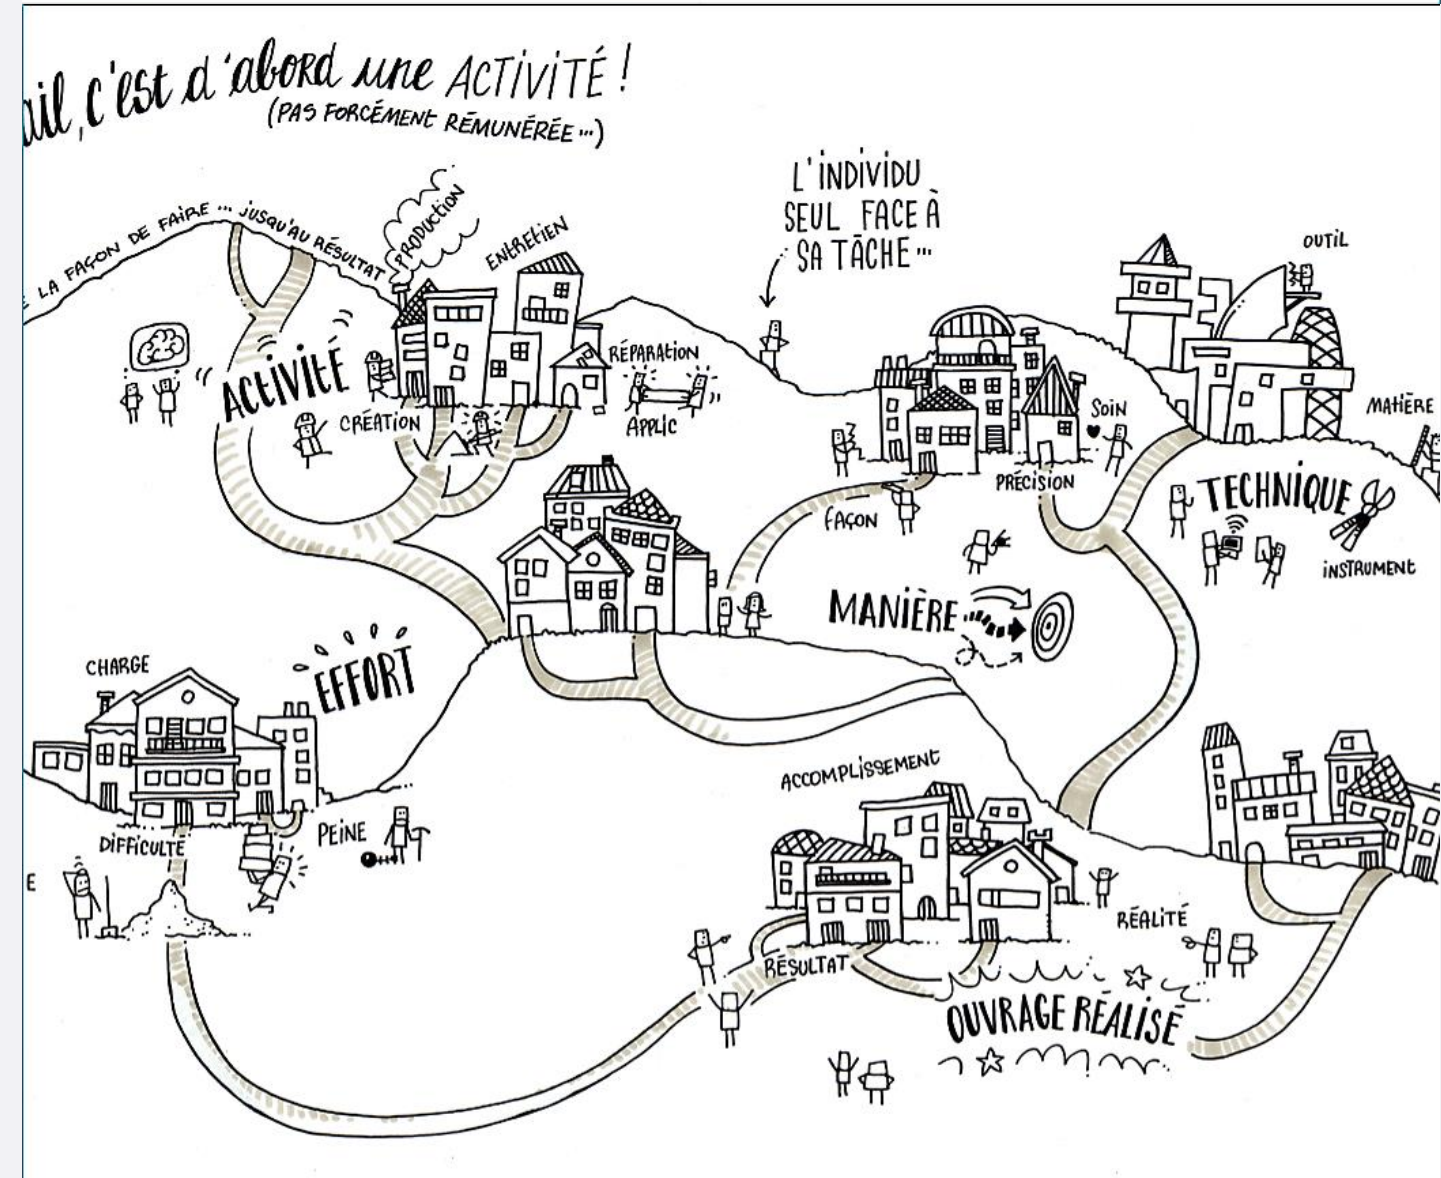 ail, c'est d'abord une ACTIVITÉ !
(PAS FORCÉMENT RÉMUNÉRÉE ...)
LA FAÇON DE FAIRE ... JUSQU'AU RÉSULTAT
PRODUCTION
ENTRETIEN
L'INDIVIDU
SEUL FACE À
SA TÂCHE ...
OUTIL
ACTIVITÉ
CRÉATION
RÉPARATION
APPLIC
SOIN
MATIÈRE
PRÉCISION
TECHNIQUE
FAÇON
INSTRUMENT
MANIÈRE
CHARGE
EFFORT
ACCOMPLISSEMENT
DIFFICULTÉ
PEINE
E
RÉALITÉ
RÉSULTAT
OUVRAGE RÉALISÉ